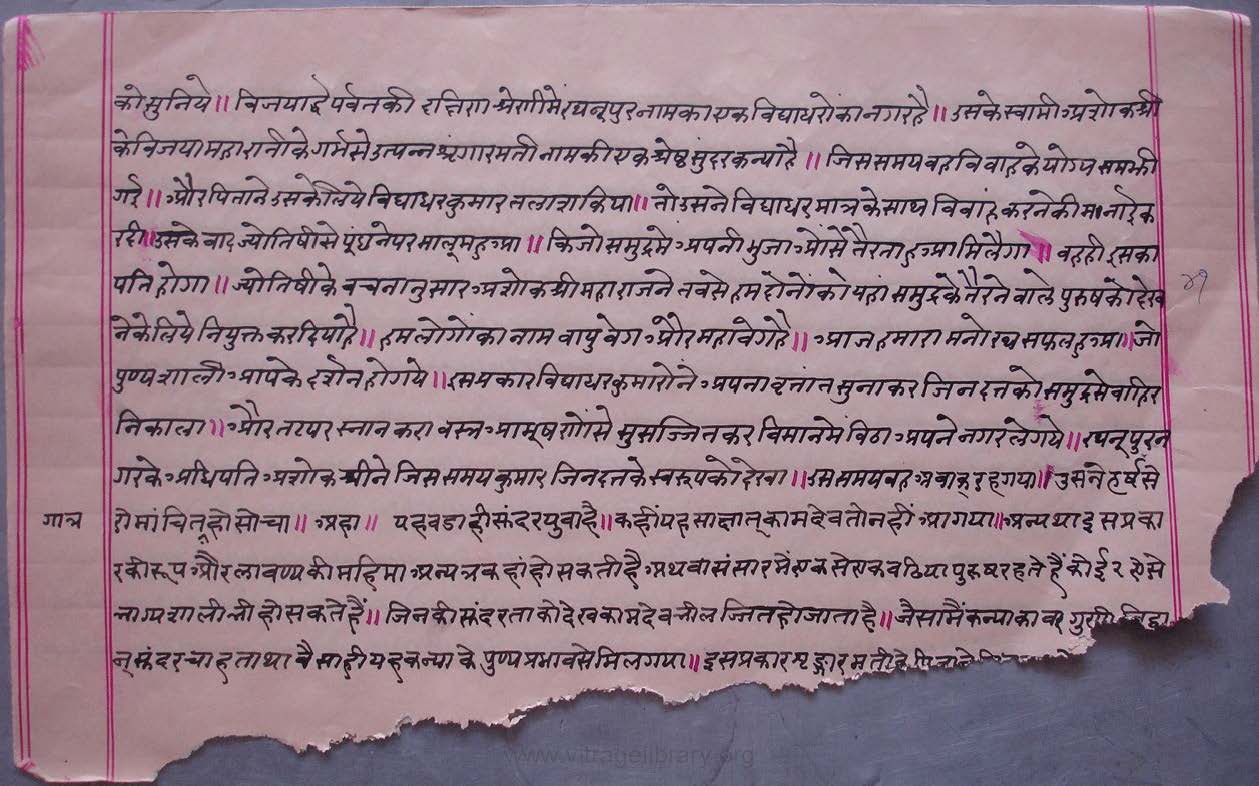 को सुनिये॥ विजयार्द्ध पर्वतकी दक्षिण श्रेणीमें रथनूपुर नामका एक विद्याधरोंका नगरहै॥ उसके स्वामी अशोकश्री
के विजया महारानीके गर्भसे उत्पन्न श्रंगारमती नामकी एक श्रेष्ठ सुंदर कन्या है॥ जिस समय वह विवाहके योग्य समझी
गई॥ और पिताने उसकेलिये विद्याधर कुमार तलाश किया॥ तो उसने विद्याधर मात्रके साथ विवाह करनेकी मनाई क
रदी॥ उसकेबाद ज्योतिषीसे पूंछनेपर मालूम हुआ॥ कि जो समुद्रमे अपनी भुजाओंसे तैरता हुआ मिलैगा॥ वहही इसका
पति होगा॥ ज्योतिषीके वचनानुसार अशोकश्री महाराजने तबसे हम दोनोंको यहां समुद्रके तैरने वाले पुरुषको देख
नेकेलिये नियुक्त करदिया है॥ हम लोगोंका नाम वायुवेग और महावेग है॥ आज हमारा मनोरथ सफल हुआ॥ जो
पुण्यशाली आपके दर्शन होगये॥ इसप्रकार विद्याधर कुमारोंने अपना वृत्तांत सुनाकर जिनदत्तको समुद्रसे बाहिर
निकाला॥ और तटपर स्नान करा वस्त्र आभूषणोंसे सुसज्जितकर विमानमें बिठा अपने नगर लेगये॥ रथनूपुर न
गरके अधिपति अशोकश्रीने जिस समय कुमार जिनदत्तके स्वरूपको देखा॥ उस समय वह अवाक् रहगया॥ उसने हर्षसे
गात्र रोमांचित हो सोचा॥ अहा॥ यह बडाही सुंदर युवा है॥ कहीं यह साक्षात् कामदेव तो नहीं आगया॥ अन्यथा इसप्रका
रकी रूप और लावण्यकी महिमा अन्यत्र कहां हो सकती है अथवा संसारमें एकसे एक बढिया पुरुष रहते हैं कोई२ ऐसे
भाग्यशाली भी होसकते हैं॥ जिनकी सुंदरताको देख कामदेव भी लज्जित होजाता है॥ जैसा मैं कन्याका वर गुणी विद्वा
न् सुंदर चाहताथा वैसाही यह कन्याके पुण्य प्रभावसे मिलगया॥ इसप्रकार शृङ्गारमतीके
४१
www.vitragelibrary.org